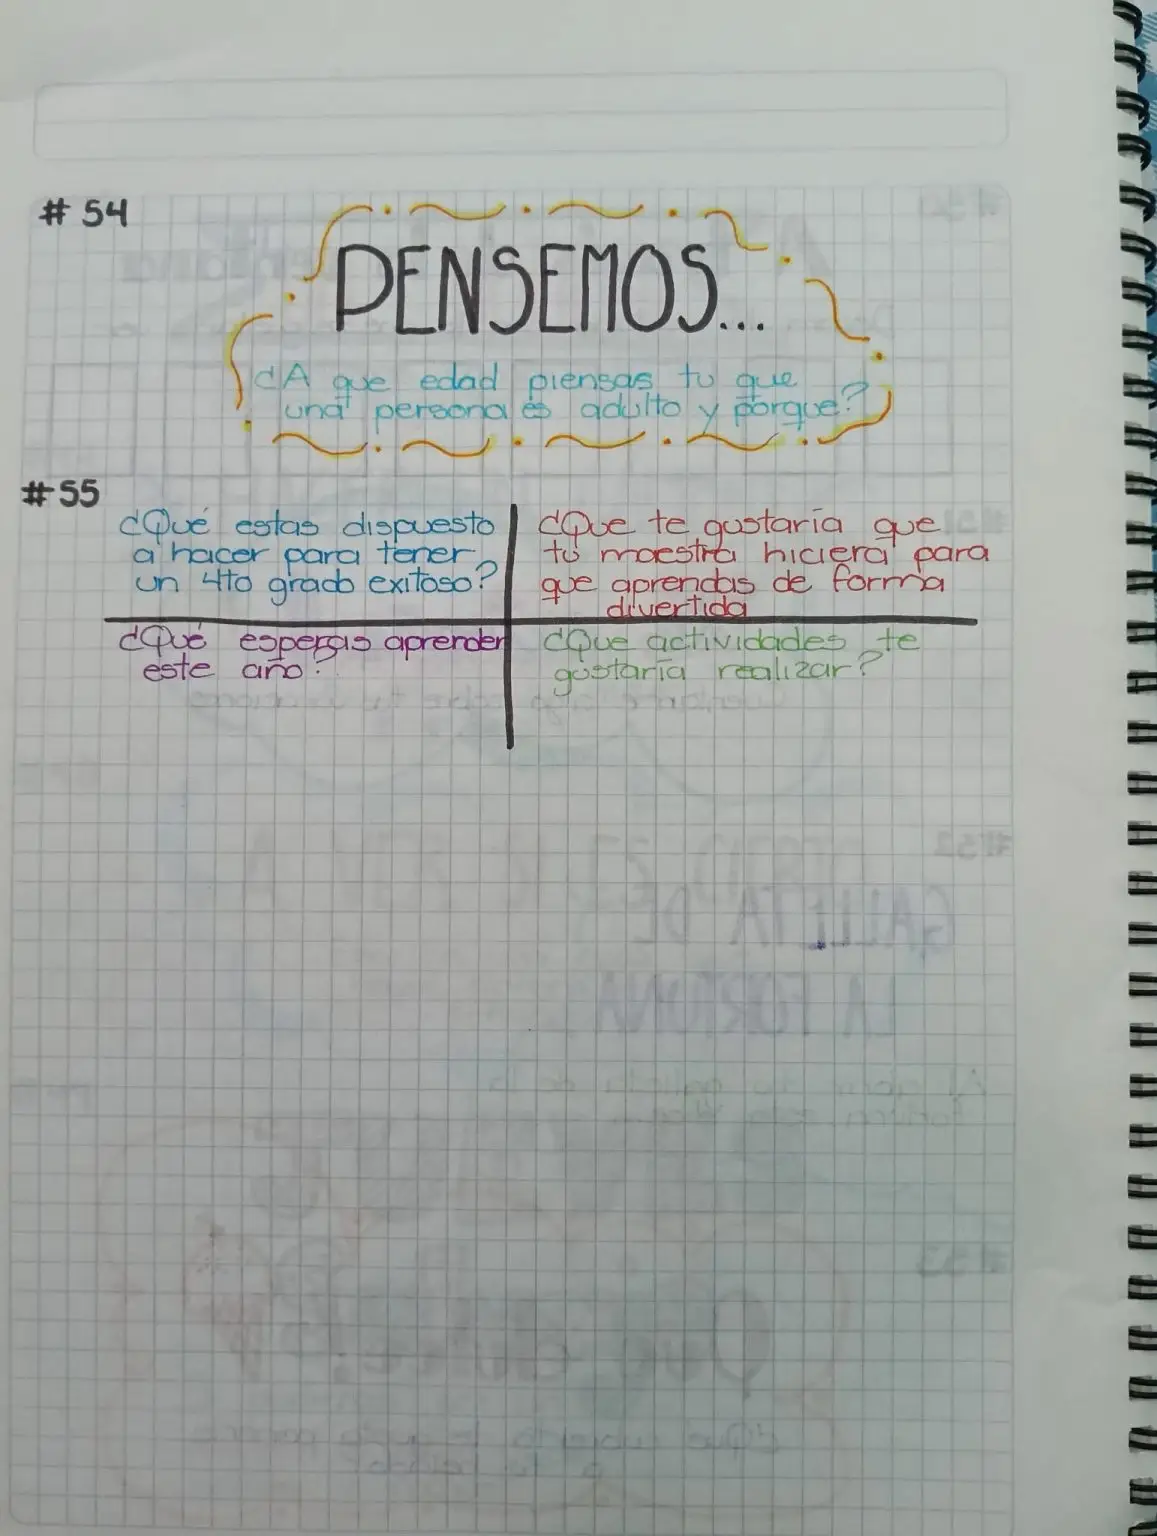 # 54
PENSEMOS...
¿A que edad piensas tu que
una persona es adulto y porque?
#55
¿Qué estas dispuesto
a hacer para tener
un 4to grado exitoso?
¿Que te gustaría que
tu maestra hiciera para
que aprendas de forma
divertida
¿Qué esperas aprender
este año?
¿Que actividades te
gustaría realizar?